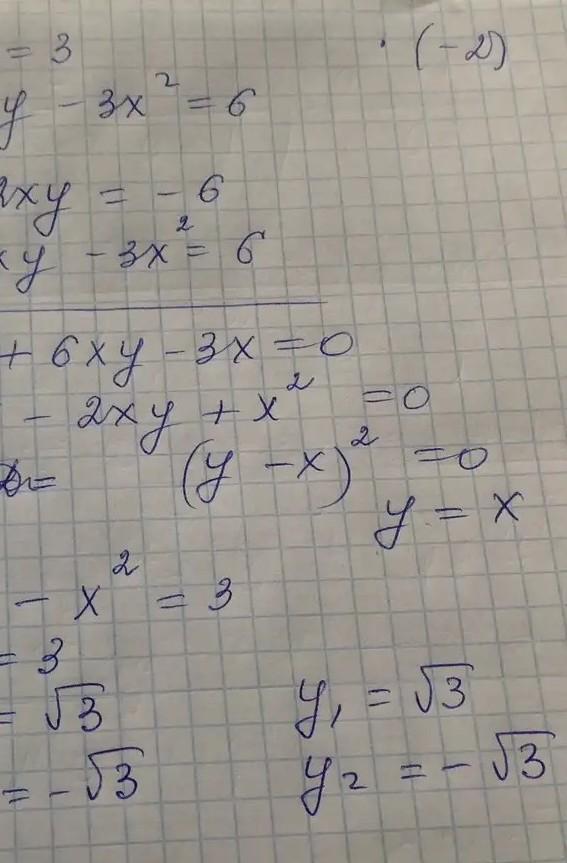 = 3 · (-2)
y - 3x² = 6
2xy = - 6
xy - 3x² = 6
+ 6xy - 3x = 0
- 2xy + x² = 0
(y - x)² = 0
y = x
- x² = 3
= 3
= √3 y₁ = √3
= -√3 y₂ = - √3